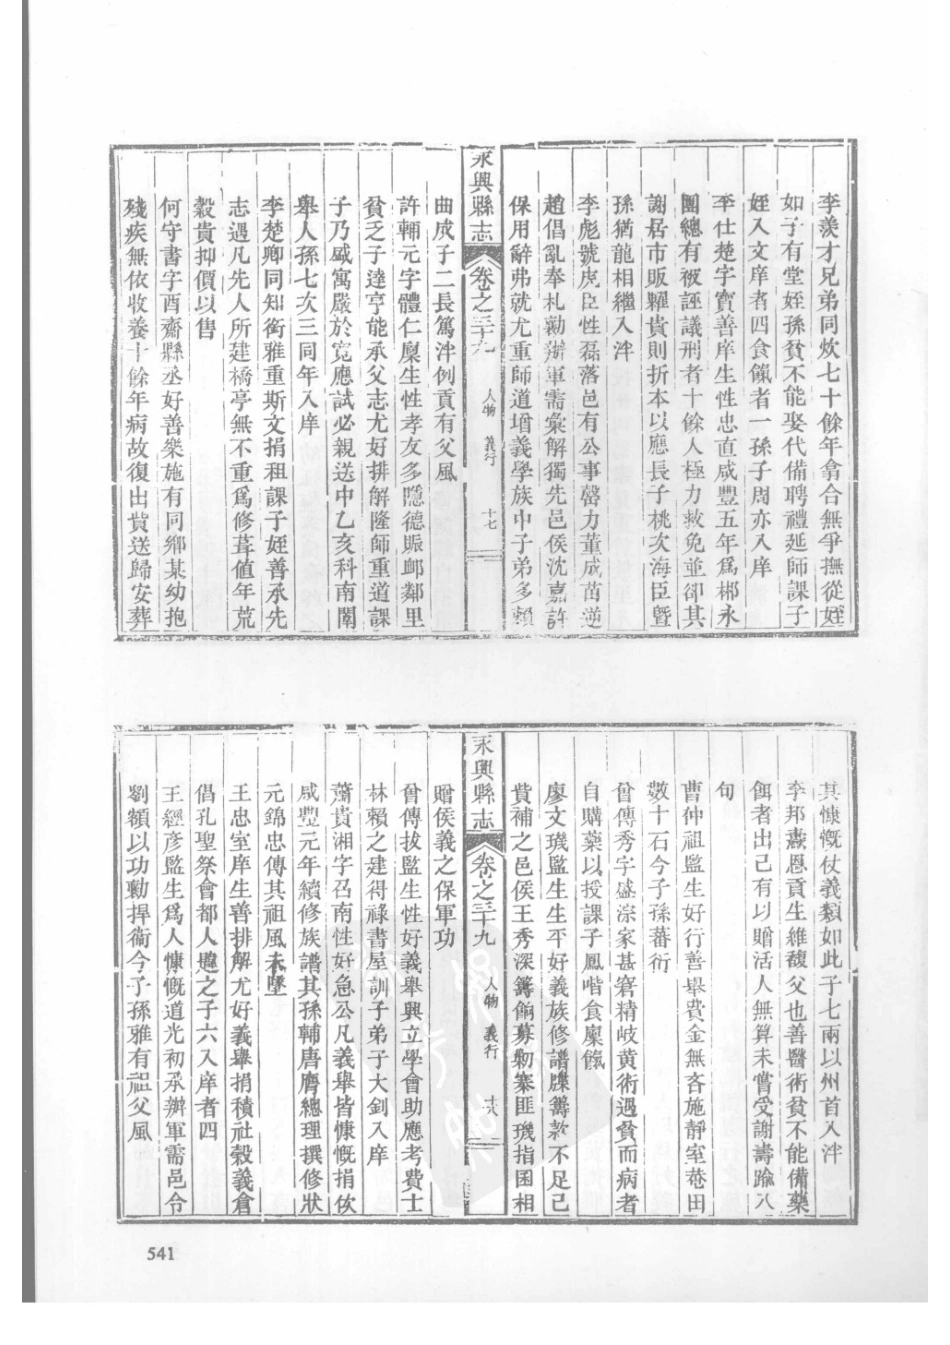 李羨才兄弟同炊七十餘年翕合無爭撫從姪
如子有堂姪孫貧不能娶代備聘禮延師課子
姪入文庠者四食餼者一孫子周亦入庠
李仕楚字寶善庠生性忠直咸豐五年爲郴永
團總有被誣議刑者十餘人極力救免並卻其
謝居市販糶貴則折本以應長子桃次海臣曁
孫猶龍相繼入泮
李彪號虎臣性磊落邑有公事罄力董成苗逆
趙倡亂奉札勸辦軍需彙解獨先邑侯沈嘉許
保用辭弗就尤重師道增義學族中子弟多賴
永興縣志 卷之三十九 人物 義行 十七
曲成子二長篤泮例貢有父風
許輔元字體仁廩生性孝友多隱德賑卹鄰里
貧乏子達亨能承父志尤好排解隆師重道課
子乃嚴寓嚴於寬應試必親送中乙亥科南闈
舉人孫七次三同年入庠
李楚卿同知銜雅重斯文捐租課子姪善承先
志遇凡先人所建橋亭無不重爲修葺值年荒
穀貴抑價以售
何守書字酉齋縣丞好善樂施有同鄉某幼抱
殘疾無依收養十餘年病故復出貲送歸安葬
其慷慨仗義類如此子七兩以州首入泮
李邦燕恩貢生維馥父也善醫術貧不能備藥
餌者出己有以贈活人無算未嘗受謝壽踰八
旬
曹仲祖監生好行善舉費金無吝施靜室菴田
數十石今子孫蕃衍
曾傳秀字盛淙家甚窘精岐黃術遇貧而病者
自購藥以授課子鳳喈食廩餼
廖文璣監生生平好義族修譜牒籌款不足己
貲補之邑侯王秀深籌餉募勦寨匪璣指囷相
永興縣志 卷之三十九 人物 義行 十八
贈侯義之保軍功
曾傳拔監生性好義舉興立學會助應考費士
林賴之建得祿書屋訓子弟子大釗入庠
蕭貴湘字召南性好急公凡義舉皆慷慨捐攸
咸豐元年續修族譜其孫輔唐膺總理撰修狀
元錦忠傳其祖風未墜
王忠室庠生善排解尤好義舉捐積社穀義倉
倡孔聖祭會都人韙之子六入庠者四
王經彥監生爲人慷慨道光初承辦軍需邑令
劉額以功勷捍衞今子孫雅有祖父風
541